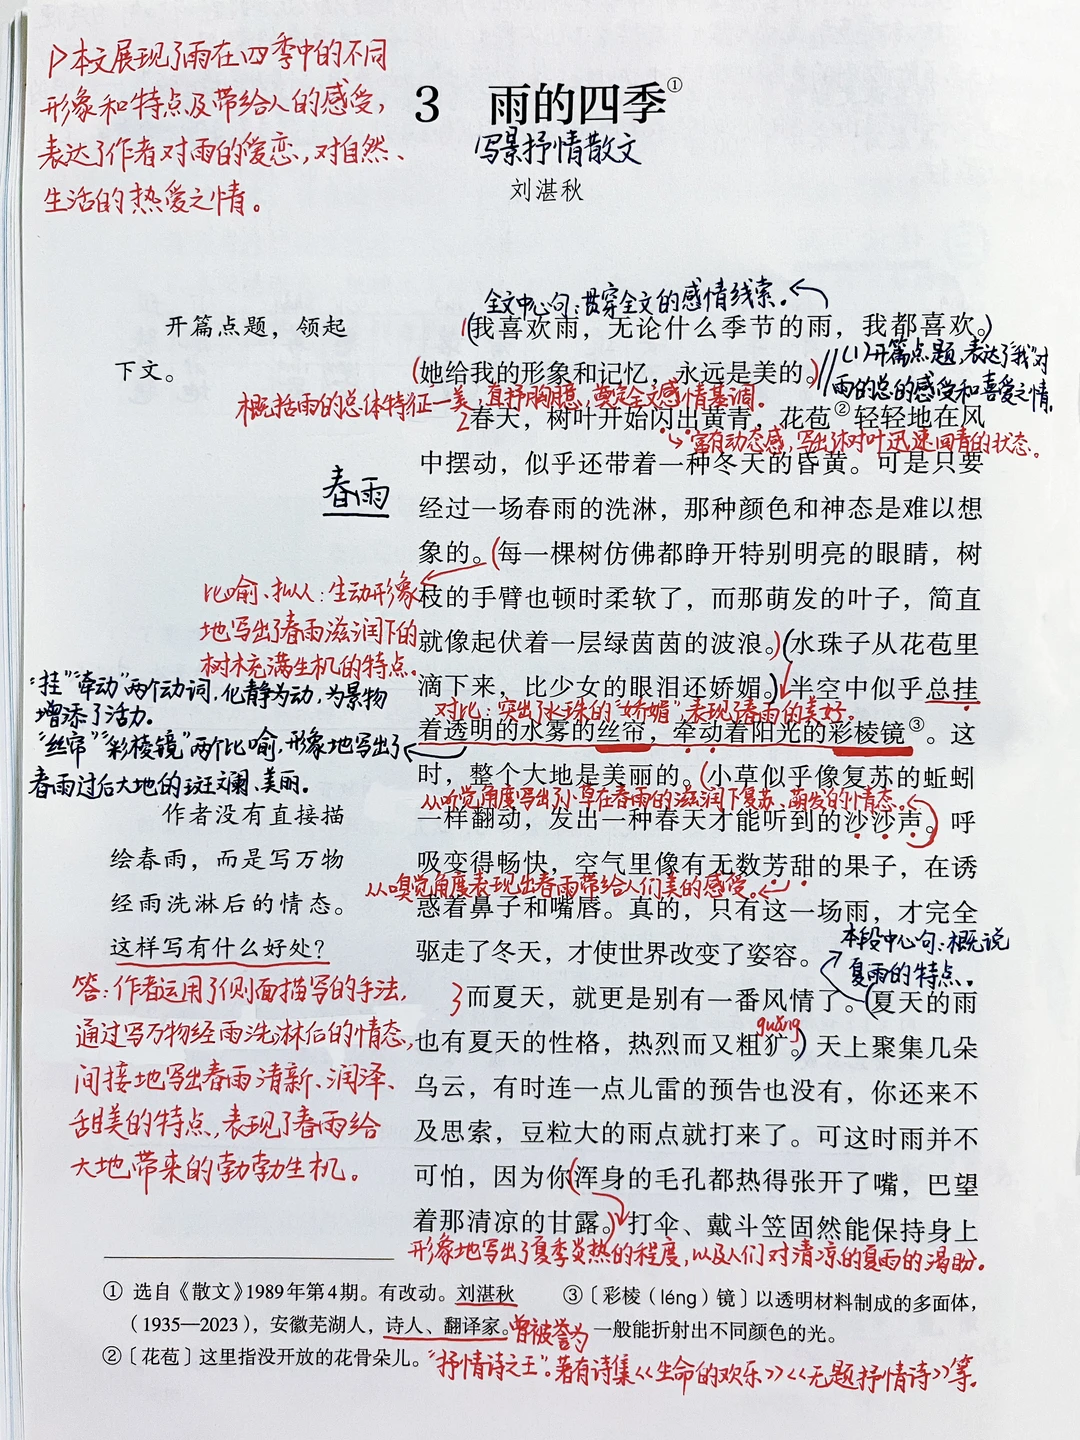 ▷本文展现了雨在四季中的不同
形象和特点及带给人的感受,
表达了作者对雨的爱恋,对自然、
生活的热爱之情。
3 雨的四季①
写景抒情散文
刘湛秋
全文中心句:贯穿全文的感情线索。
开篇点题，领起
下文。
1(我喜欢雨，无论什么季节的雨，我都喜欢。)
(她给我的形象和记忆，永远是美的。)//
(1)开篇点题,表达了"我"对
雨的总的感受和喜爱之情。
概括雨的总体特征—美,直抒胸臆,奠定全文感情基调。
2春天，树叶开始闪出黄青，花苞②轻轻地在风
富有动态感,写出了树叶迅速回青的状态。
中摆动，似乎还带着一种冬天的昏黄。可是只要
春雨
经过一场春雨的洗淋，那种颜色和神态是难以想
象的。(每一棵树仿佛都睁开特别明亮的眼睛，树
枝的手臂也顿时柔软了，而那萌发的叶子，简直
就像起伏着一层绿茵茵的波浪。)(水珠子从花苞里
比喻、拟人:生动形象
地写出了春雨滋润下的
树木充满生机的特点。
滴下来，比少女的眼泪还娇媚。)半空中似乎总挂
对比:突出了水珠的"娇媚",表现了春雨的美好。
着透明的水雾的丝帘，牵动着阳光的彩棱镜③。这
"挂""牵动"两个动词,化静为动,为景物
增添了活力。
"丝帘""彩棱镜"两个比喻,形象地写出了
春雨过后大地的斑斓、美丽。
时，整个大地是美丽的。(小草似乎像复苏的蚯蚓
从听觉角度写出了小草在春雨的滋润下复苏、萌发的情态。
一样翻动，发出一种春天才能听到的沙沙声。)呼
吸变得畅快，空气里像有无数芳甜的果子，在诱
从嗅觉角度表现出春雨带给人们美的感受。
惑着鼻子和嘴唇。真的，只有这一场雨，才完全
驱走了冬天，才使世界改变了姿容。
作者没有直接描
绘春雨，而是写万物
经雨洗淋后的情态。
这样写有什么好处？
答:作者运用了侧面描写的手法,
通过写万物经雨洗淋后的情态,
间接地写出春雨清新、润泽、
甜美的特点,表现了春雨给
大地带来的勃勃生机。
本段中心句:概说
夏雨的特点。
3而夏天，就更是别有一番风情了。(夏天的雨
guǎng
也有夏天的性格，热烈而又粗犷。)天上聚集几朵
乌云，有时连一点儿雷的预告也没有，你还来不
及思索，豆粒大的雨点就打来了。可这时雨并不
可怕，因为你(浑身的毛孔都热得张开了嘴，巴望
着那清凉的甘露。)打伞、戴斗笠固然能保持身上
形象地写出了夏季炎热的程度,以及人们对清凉的夏雨的渴盼。
① 选自《散文》1989年第4期。有改动。刘湛秋
（1935—2023），安徽芜湖人，诗人、翻译家。曾被誉为
②〔花苞〕这里指没开放的花骨朵儿。"抒情诗之王"。著有诗集《生命的欢乐》《无题抒情诗》等。
③〔彩棱（léng）镜〕以透明材料制成的多面体，
一般能折射出不同颜色的光。